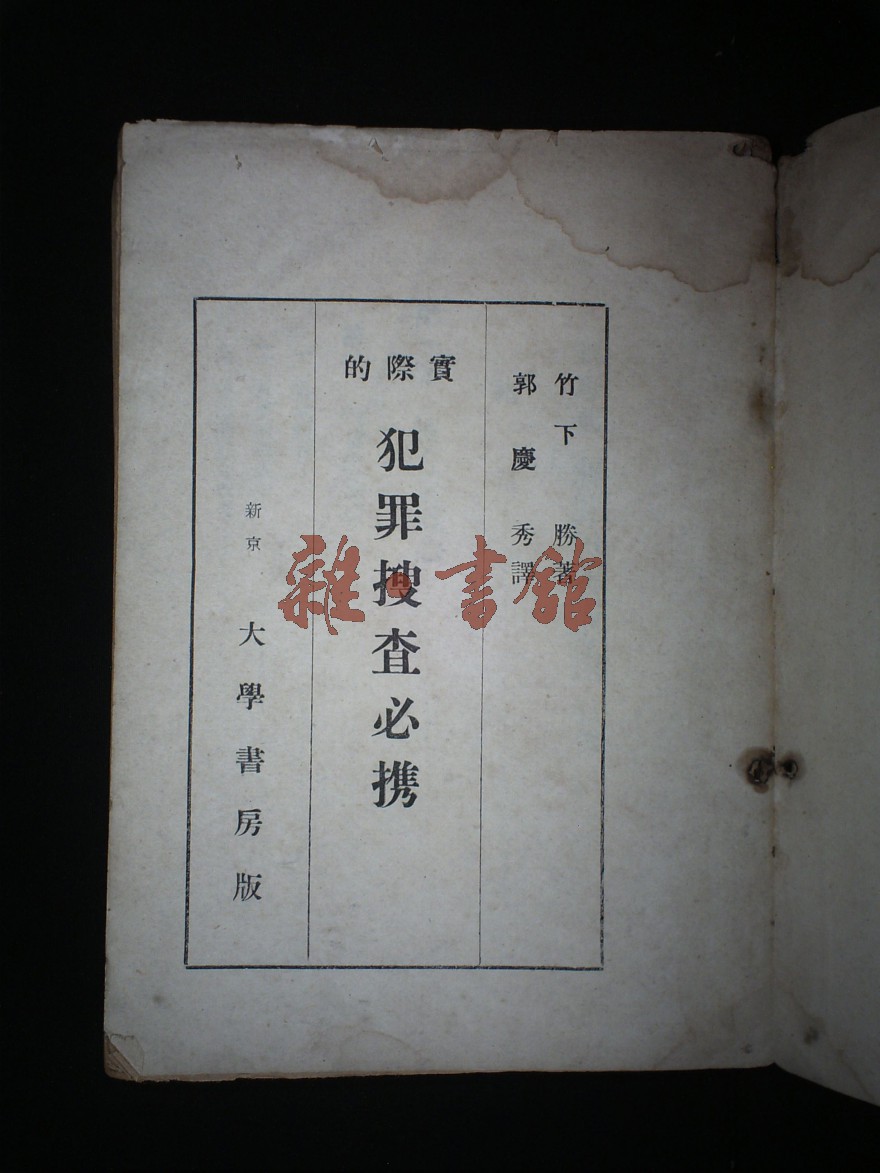 竹下 勝著
郭慶秀譯
實際的
犯罪搜査必携
新京 大學書房版
雜書館